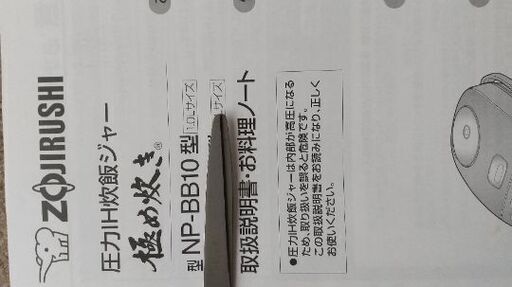 ZOJIRUSHI
圧力IH炊飯ジャー
極め炊き®
型 NP-BB10型 1.0Lサイズ
サイズ
取扱説明書・お料理ノート
●圧力IH炊飯ジャーは内部が高圧になる
ため、取り扱いを誤ると危険です。
この取扱説明書をお読みになり、正しく
お使いください。